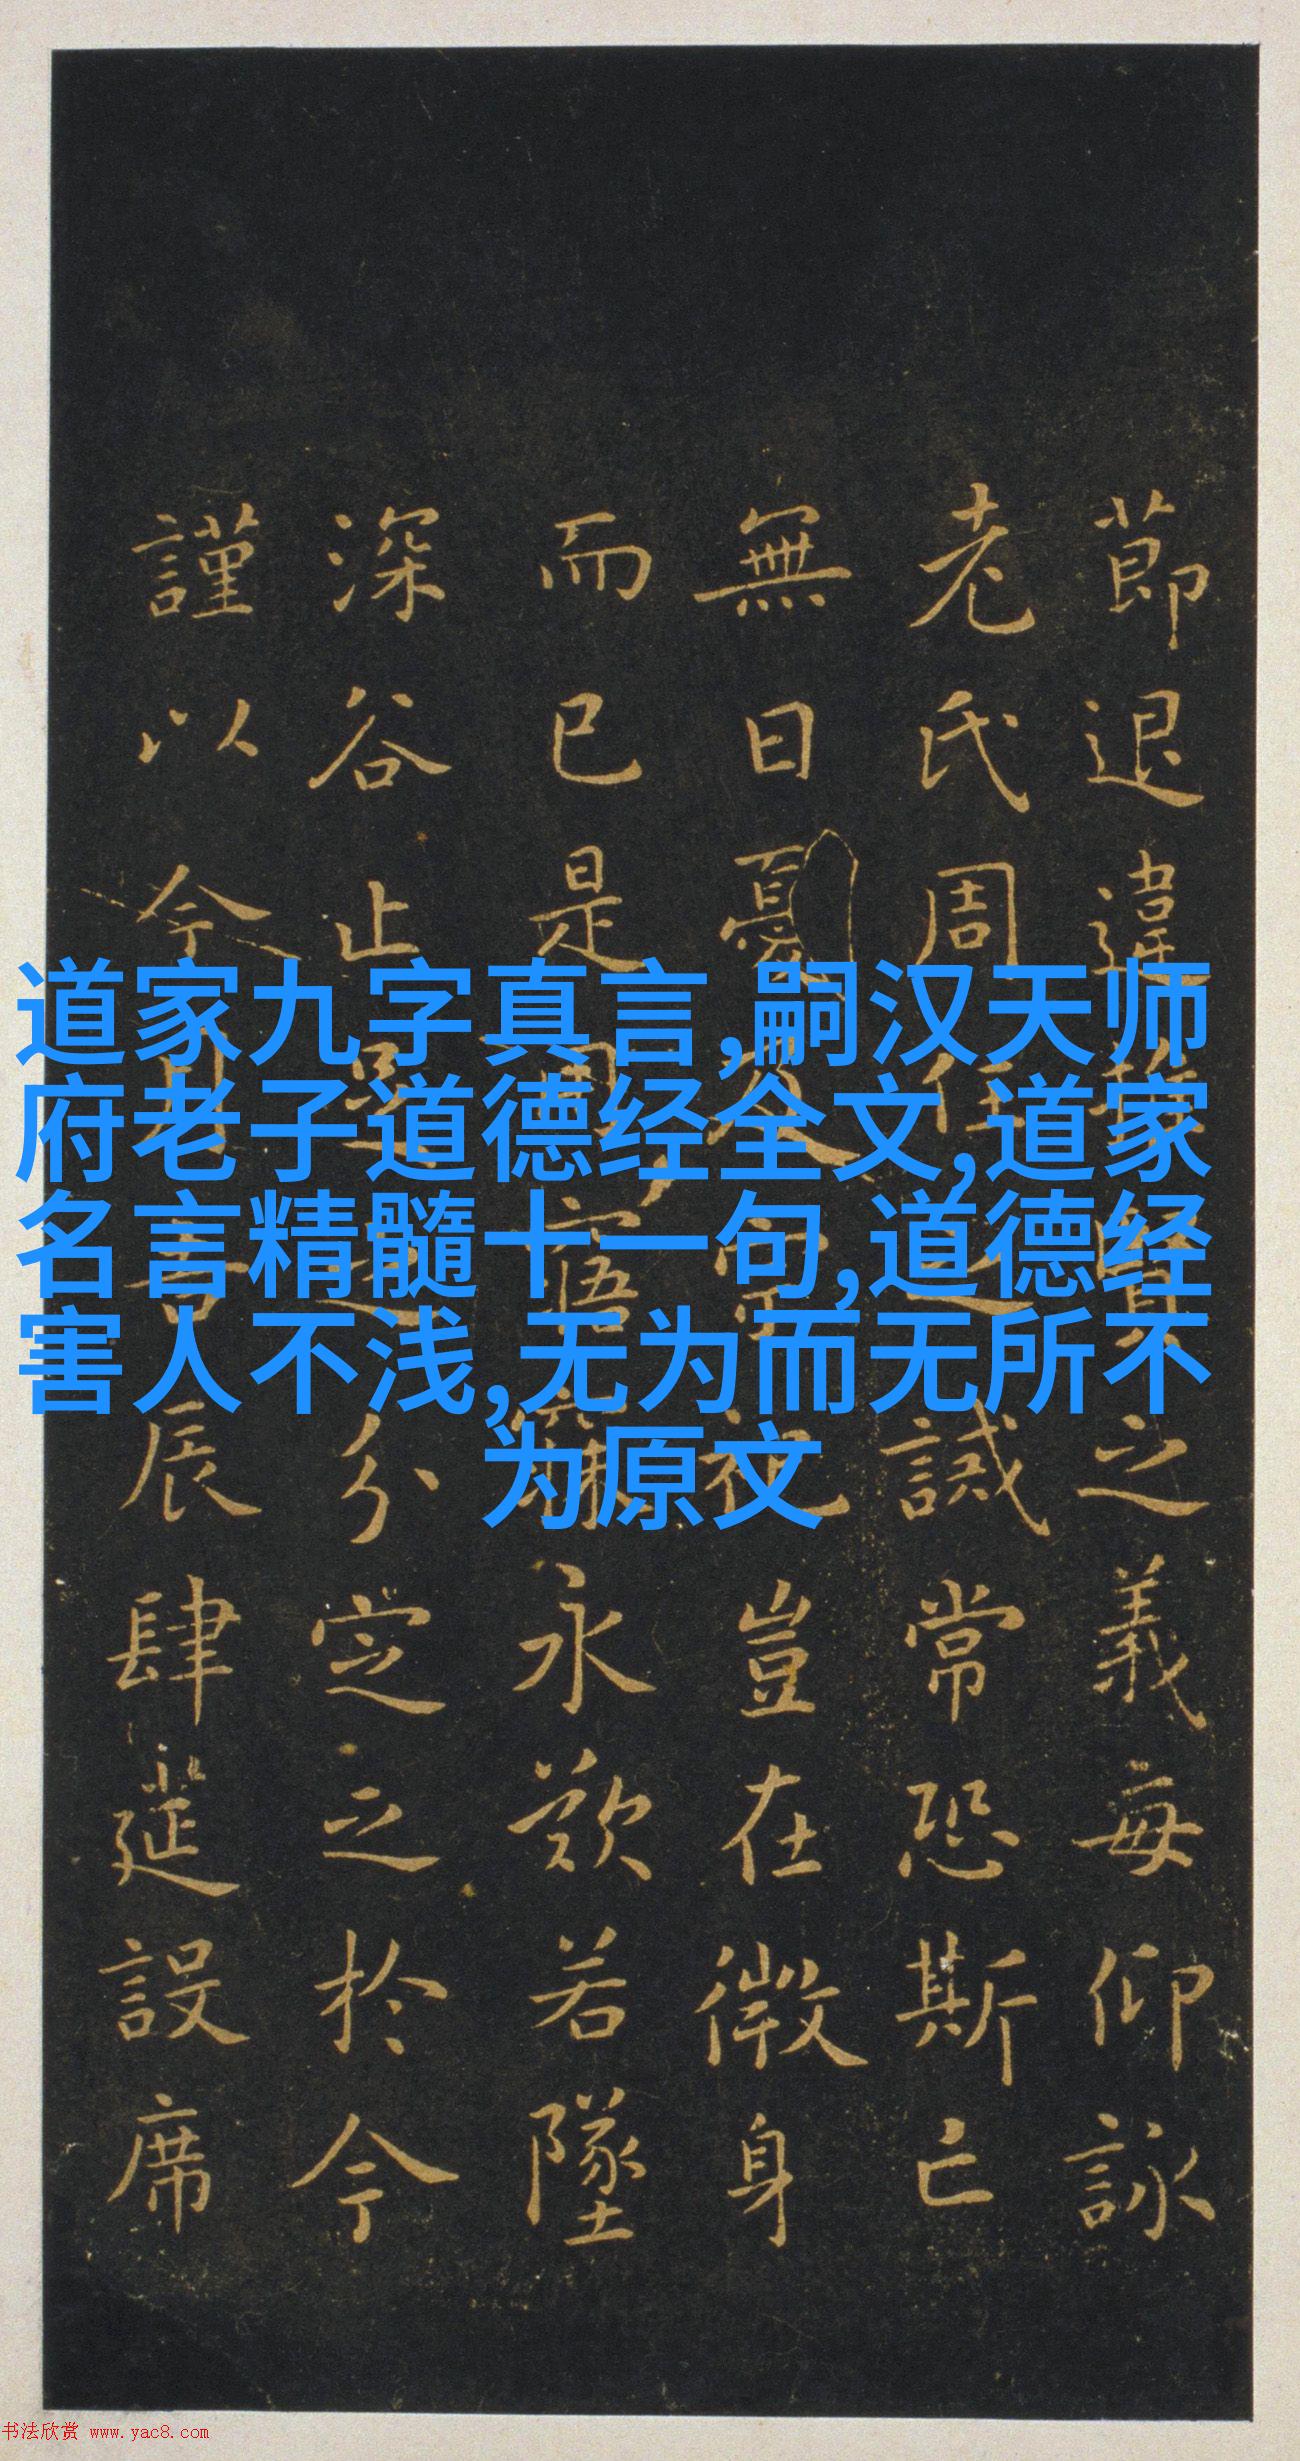 道家九字真言,嗣汉天师
府老子道德经全文,道家
名言精髓十一句,道德经
害人不浅,无为而无所不
为原文
節退違推賢之義每仰詠
老氏周任之誡常恐斯亡
無日憂及宗祀豈在微身
而已是用寤寐永歎若墜
深谷止足之分定之於今
謹以今月吉辰肆筵設席
书法欣赏 www.yac8.com